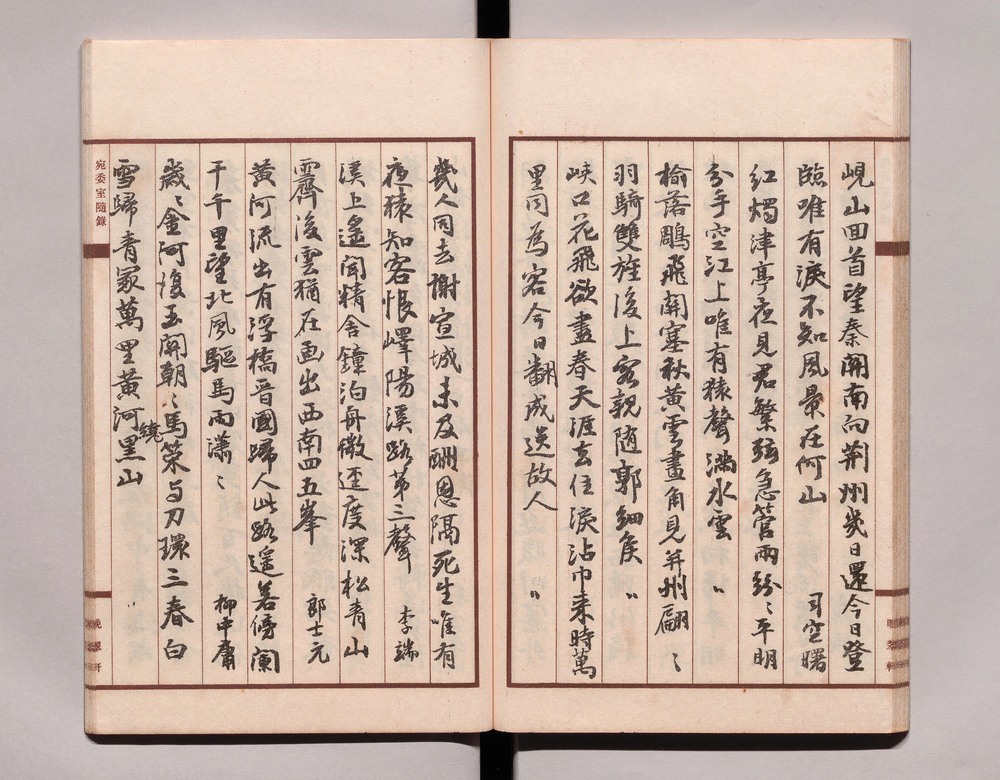 峴山回首望秦關南向荆州幾日還今日登
臨唯有淚不知風景在何山 司空曙
紅燭津亭夜見君繁絃急管兩紛〻平明
分手空江上唯有猿聲滿水雲 〃
榆落鵰飛關塞秋黃雲畫角見并州翩〻
羽騎雙旌後上客親隨郭細侯 〃
峽口花飛欲盡春天涯去住淚沾巾來時萬
里同為客今日翻成送故人 〃
幾人同去謝宣城未及酬恩隔死生唯有
夜猿知客恨嶧陽溪路第三聲 李端
溪上遙聞精舍鐘泊舟微逕度深松青山
霽後雲猶在画出西南四五峯 郎士元
黃河流出有浮橋晉國歸人此路遙若傍闌
干千里望北風驅馬雨瀟〻 柳中庸
歲〻金河復玉關朝〻馬策与刀環三春白
雪歸青冢萬里黃河繞黑山 〃
宛委室隨錄